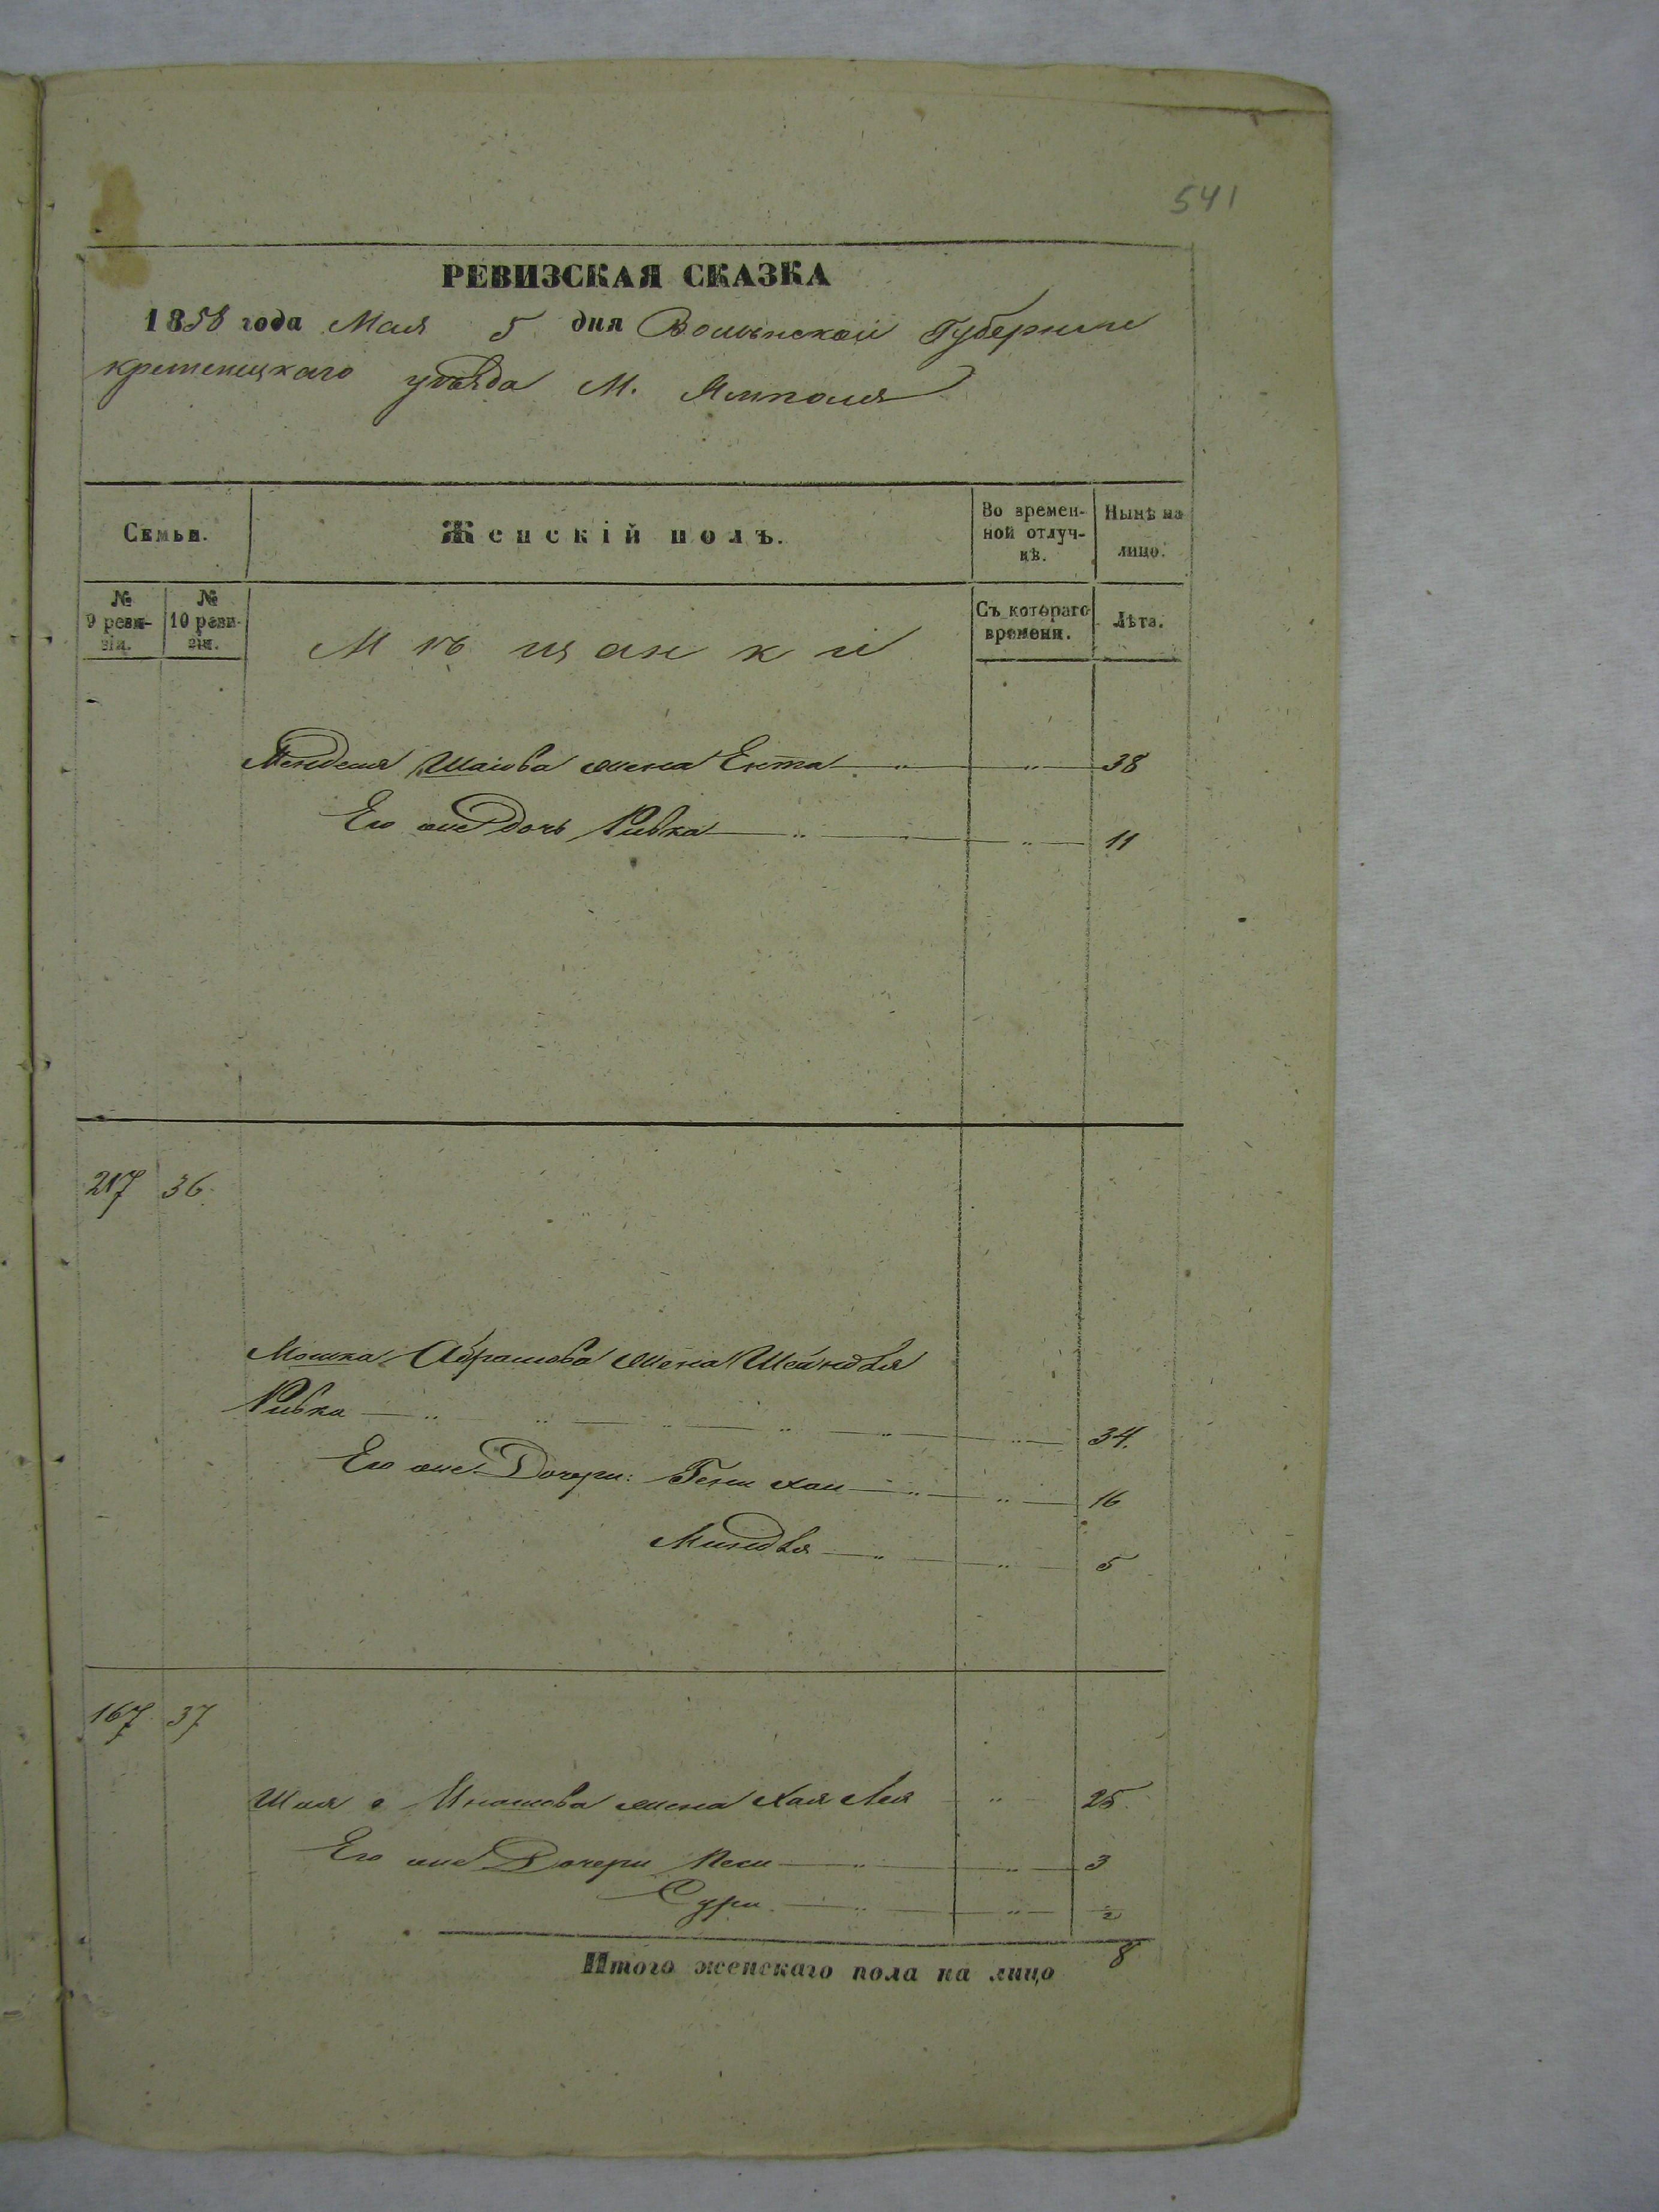 541
РЕВИЗСКАЯ СКАЗКА
1858 года Мая 5 дня Волынской Губернии
кременецкаго уѣзда М. Ямполя
Семьи.
Женскій полъ.
Во времен-
ной отлуч-
кѣ.
Нынѣ на
лицо.
№
9 реви-
зіи.
№
10 реви-
зіи.
Мѣщанки
Съ котораго
времени.
Лѣта.
Менделя Шаiова жена Ента 38
Его же дочь Ривка 11
217 36.
Мошка Абрамова жена Шейндля
Ривка 34.
Его же Дочери: Геня Хая 16
Миндля 5
167 37
Шая жена Хая Лея 25.
Его же Дочери Песи 3
Сури 2
Итого женскаго пола на лицо 8